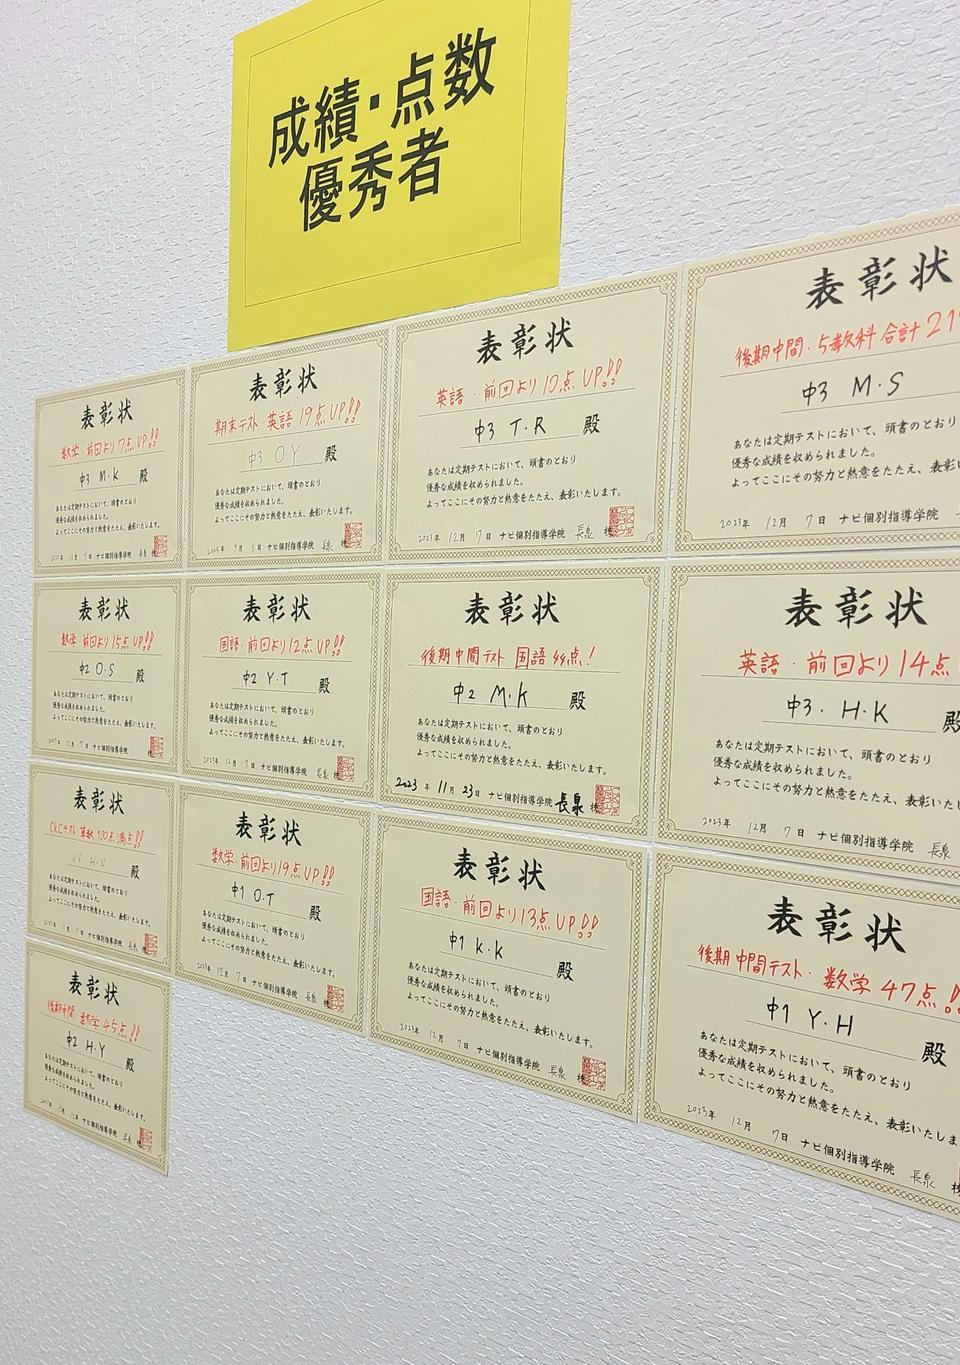 成績・点数
優秀者
表彰状
数学 前回より7点UP!!
中3 M・K 殿
あなたは定期テストにおいて、頭書のとおり
優秀な成績を収められました。
よってここにその努力と熱意をたたえ、表彰いたします。
2023年 12月 7日 ナビ個別指導学院 長泉 校
表彰状
期末テスト 英語 19点UP!!
中3 O・Y 殿
あなたは定期テストにおいて、頭書のとおり
優秀な成績を収められました。
よってここにその努力と熱意をたたえ、表彰いたします。
2023年 9月 5日 ナビ個別指導学院 長泉 校
表彰状
英語・前回より10点UP!!
中3 T・R 殿
あなたは定期テストにおいて、頭書のとおり
優秀な成績を収められました。
よってここにその努力と熱意をたたえ、表彰いたします。
2023年 12月 7日 ナビ個別指導学院 長泉 校
表彰状
後期中間・5教科 合計
中3 M・S
あなたは定期テストにおいて、頭書のとおり
優秀な成績を収められました。
よってここにその努力と熱意をたたえ、表彰い
2023年 12月 7日 ナビ個別指導学院
表彰状
数学・前回より15点UP!!
中2 O・S 殿
あなたは定期テストにおいて、頭書のとおり
優秀な成績を収められました。
よってここにその努力と熱意をたたえ、表彰いたします。
2023年 12月 7日 ナビ個別指導学院 長泉 校
表彰状
国語・前回より12点UP!!
中2 Y・T 殿
あなたは定期テストにおいて、頭書のとおり
優秀な成績を収められました。
よってここにその努力と熱意をたたえ、表彰いたします。
2023年 12月 7日 ナビ個別指導学院 長泉 校
表彰状
後期中間テスト 国語44点!
中2 M・K 殿
あなたは定期テストにおいて、頭書のとおり
優秀な成績を収められました。
よってここにその努力と熱意をたたえ、表彰いたします。
2023年 11月 23日 ナビ個別指導学院 長泉 校
表彰状
英語・前回より14点
中3・H・K 殿
あなたは定期テストにおいて、頭書のとおり
優秀な成績を収められました。
よってここにその努力と熱意をたたえ、表彰いたし
2023年 12月 7日 ナビ個別指導学院 長泉
表彰状
テスト 算数100点満点!!
殿
あなたは定期テストにおいて、頭書のとおり
優秀な成績を収められました。
よってここにその努力と熱意をたたえ、表彰いたします。
ナビ個別指導学院 長泉 校
表彰状
数学・前回より19点UP!!
中1 O・T 殿
あなたは定期テストにおいて、頭書のとおり
優秀な成績を収められました。
よってここにその努力と熱意をたたえ、表彰いたします。
2023年 12月 7日 ナビ個別指導学院 長泉 校
表彰状
国語・前回より13点UP!!
中1 K・K 殿
あなたは定期テストにおいて、頭書のとおり
優秀な成績を収められました。
よってここにその努力と熱意をたたえ、表彰いたします。
2023年 12月 7日 ナビ個別指導学院 長泉 校
表彰状
後期中間テスト・数学47点!!
中1 Y・H 殿
あなたは定期テストにおいて、頭書のとおり
優秀な成績を収められました。
よってここにその努力と熱意をたたえ、表彰いたしま
2023年 12月 7日 ナビ個別指導学院 長泉 校
表彰状
後期中間・数学45点!!
中2 H・Y 殿
あなたは定期テストにおいて、頭書のとおり
優秀な成績を収められました。
よってここにその努力と熱意をたたえ、表彰いたします。
ナビ個別指導学院 長泉 校